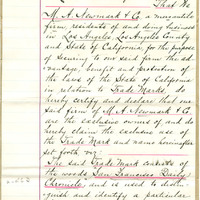 That We
M. A. Newmark & Co. a mercantile
firm, residents of and doing business
in Los Angeles, Los Angeles County
and State of California, for the purpose
of securing to our said firm the ad-
vantage, benefit and protection of
the laws of the State of California
in relation to Trade Marks, do
hereby certify and declare that our
said firm of M. A. Newmark & Co.
are the exclusive owners of and do
hereby claim the exclusive use of
the Trade Mark and name hereinafter
set forth viz:
The said Trade Mark consists of
the words San Francisco Daily
Chronicle and is used to distin-
guish and identify a particular